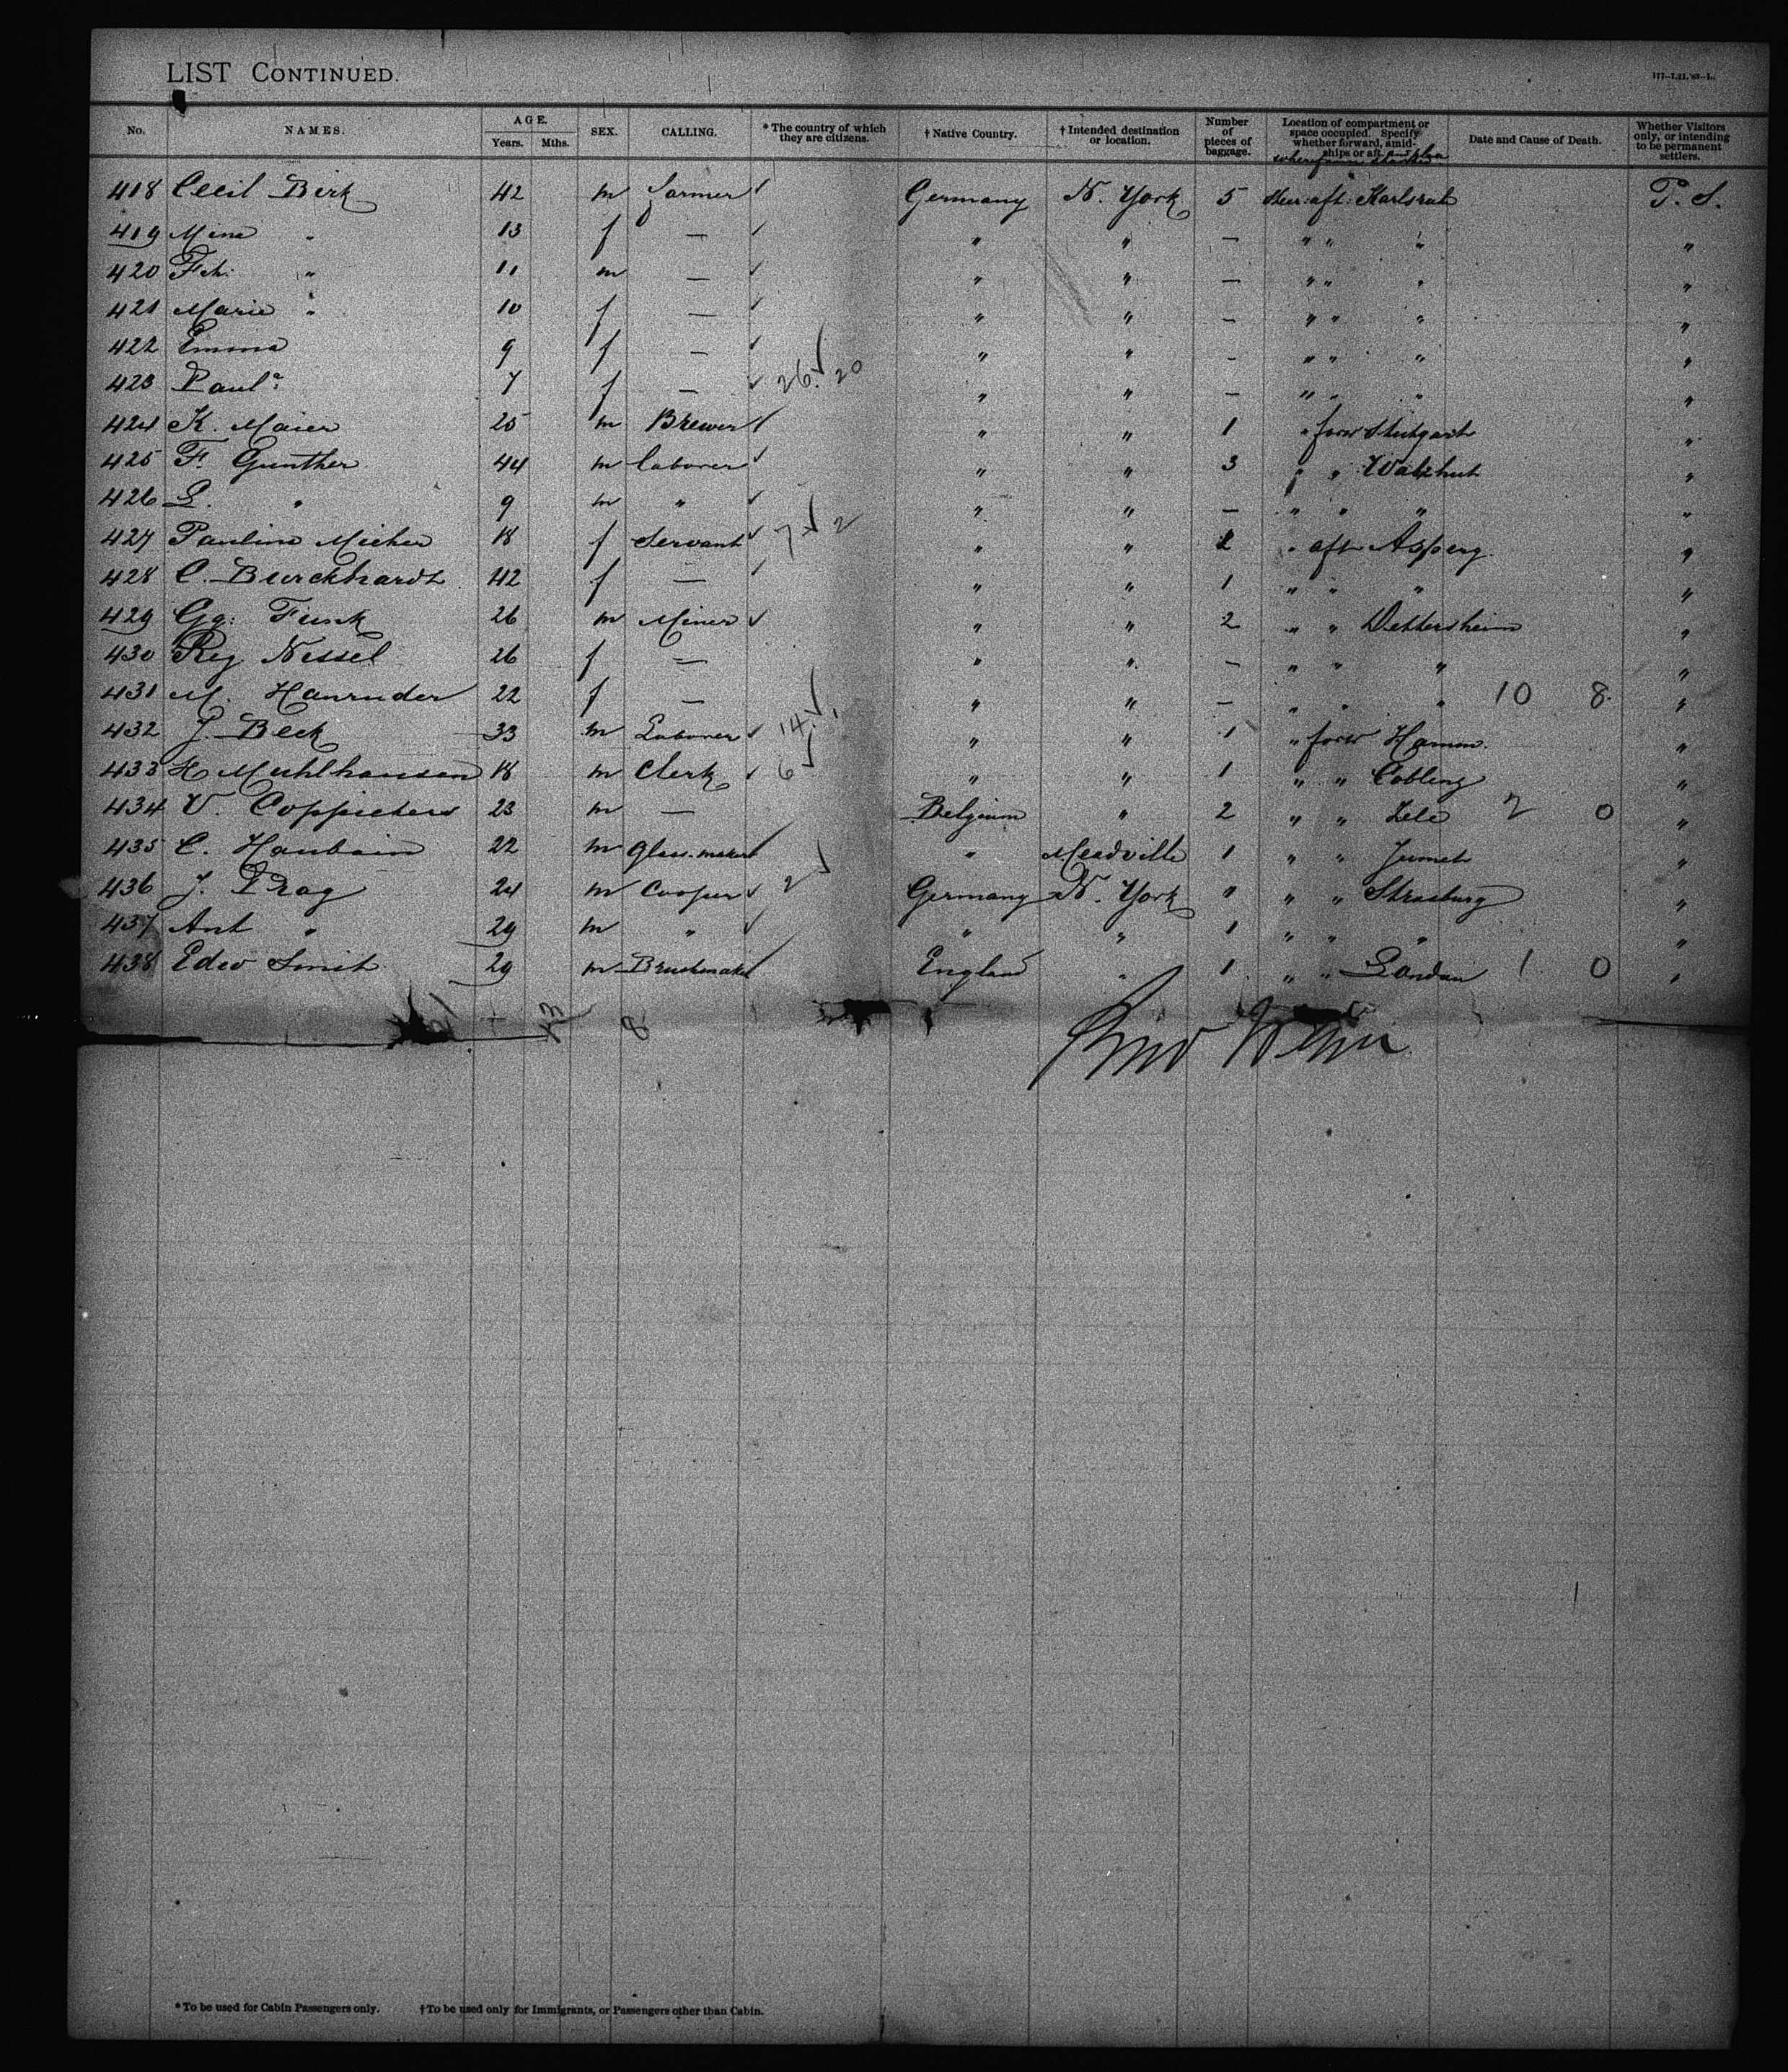 LIST CONTINUED.
177-1.21.'93-L.
No. NAMES. AGE. Years. Mths. SEX. CALLING. * The country of which they are citizens. † Native Country. † Intended destination or location. Number of pieces of baggage. Location of compartment or space occupied. Specify whether forward, amidships or aft. Date and Cause of Death. Whether Visitors only, or intending to be permanent settlers.
418 Cecil Birk 42 m farmer ✓ Germany N. York 5 Steer: aft: Karlsruh P. S.
419 Mina " 13 f — ✓ " " — " " " "
420 Fch: " 11 m — ✓ " " — " " " "
421 Marie " 10 f — ✓ " " — " " " "
422 Emma 9 f — ✓ " " — " " " "
423 Paula: 7 f — ✓ 26 ✓ 20 " " — " " " "
424 K. Maier 25 m Brewer ✓ " " 1 " forw Stuttgart "
425 F. Gunther 44 m laborer ✓ " " 3 " " Waldshut "
426 L. " 9 m " ✓ " " — " " " "
427 Pauline Micher 18 f Servant ✓ 7 ✓ 2 " " 1 " aft Asperg. "
428 C. Burckhardt 42 f — ✓ " " 1 " " " "
429 Gg: Funk 26 m Miner ✓ " " 2 " " Dettersheim "
430 Reg Nessel 26 f — " " — " " " "
431 M. Hanruder 22 f — " " — " " " 10 8 "
432 J. Beck 33 m Laborer ✓ 14 ✓ 1 " " 1 " forw Hamm. "
433 H Muhlhausen 18 m Clerk ✓ 6 ✓ " " 1 " " Coblenz "
434 V. Coppieters 23 m — Belgium " 2 " " Zele 2 0 "
435 C. Haubain 22 m Glass-maker ✓ " Meadville 1 " " Jumet "
436 J. Prag 24 m Cooper ✓ 2 ✓ Germany N. York " " " Strasburg "
437 Ant " 29 m " ✓ " " 1 " " " "
438 Edw Smit 29 m Brushmaker ✓ England " 1 " " London 1 0 "
13 8
* To be used for Cabin Passengers only. † To be used only for Immigrants, or Passengers other than Cabin.